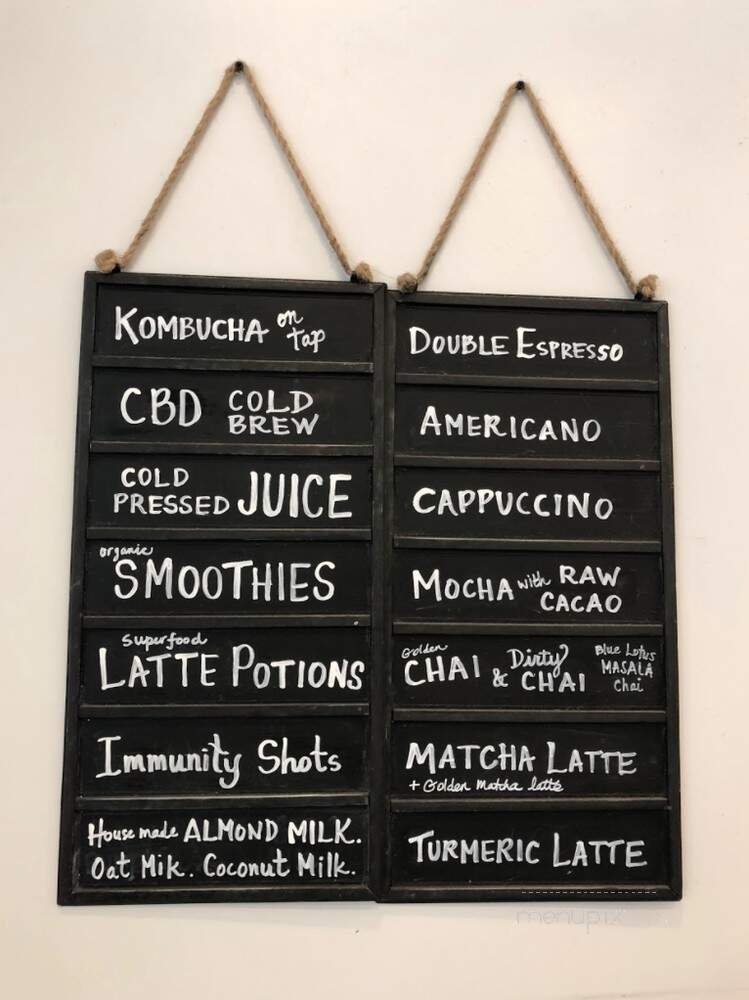 KOMBUCHA on tap
CBD COLD BREW
COLD PRESSED JUICE
organic
SMOOTHIES
Superfood
LATTE POTIONS
Immunity Shots
House made ALMOND MILK.
Oat Mik. Coconut Milk.
DOUBLE ESPRESSO
AMERICANO
CAPPUCCINO
MOCHA with RAW CACAO
Golden CHAI & Dirty CHAI Blue Lotus MASALA Chai
MATCHA LATTE
+ Golden Matcha latte
TURMERIC LATTE
menupix